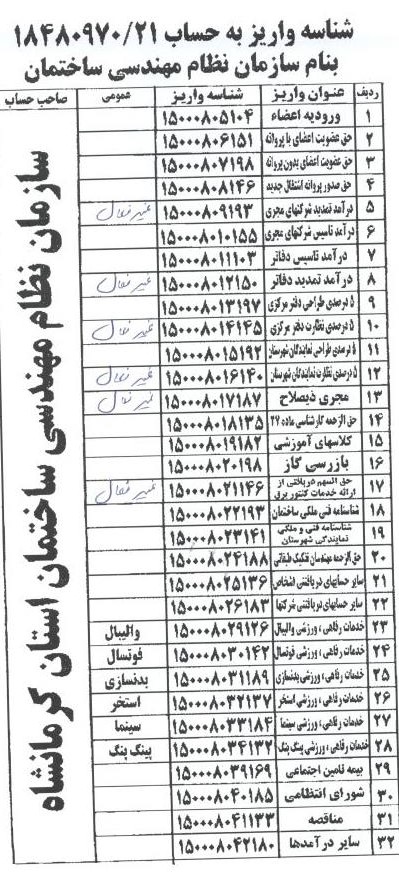 شناسه واریز به حساب ۱۸۴۸۰۹۷۰/۲۱
بنام سازمان نظام مهندسی ساختمان
ردیف عنوان واریز شناسه واریز عمومی صاحب حساب
۱ ورودیه اعضاء ۱۵۰۰۰۸۰۵۱۰۴
۲ حق عضویت اعضای با پروانه ۱۵۰۰۰۸۰۶۱۵۱
۳ حق عضویت اعضای بدون پروانه ۱۵۰۰۰۸۰۷۱۹۸
۴ حق صدور پروانه انتقال جدید ۱۵۰۰۰۸۰۸۱۴۶
۵ درآمد تمدید شرکتهای مجری ۱۵۰۰۰۸۰۹۱۹۳ غیر فعال
۶ درآمد تاسیس شرکتهای مجری ۱۵۰۰۰۸۰۱۰۱۵۵
۷ درآمد تاسیس دفاتر ۱۵۰۰۰۸۰۱۱۱۰۳
۸ درآمد تمدید دفاتر ۱۵۰۰۰۸۰۱۲۱۵۰ غیر فعال
۹ ۵ درصدی طراحی دفتر مرکزی ۱۵۰۰۰۸۰۱۳۱۹۷
۱۰ ۵ درصدی نظارت دفتر مرکزی ۱۵۰۰۰۸۰۱۴۱۴۵ غیر فعال
۱۱ ۵ درصدی طراحی نمایندگان شهرستان ۱۵۰۰۰۸۰۱۵۱۹۲
۱۲ ۵ درصدی نظارت نمایندگان شهرستان ۱۵۰۰۰۸۰۱۶۱۴۰ غیر فعال
۱۳ مجری ذیصلاح ۱۵۰۰۰۸۰۱۷۱۸۷ غیر فعال
۱۴ حق الزحمه کارشناسی ماده ۲۷ ۱۵۰۰۰۸۰۱۸۱۳۵
۱۵ کلاسهای آموزشی ۱۵۰۰۰۸۰۱۹۱۸۲
۱۶ بازرسی گاز ۱۵۰۰۰۸۰۲۰۱۹۸
۱۷ حق السهم دریافتی از ارائه خدمات کنتور برق ۱۵۰۰۰۸۰۲۱۱۴۶ غیر فعال
۱۸ شناسنامه فنی ملکی ساختمان ۱۵۰۰۰۸۰۲۲۱۹۳
۱۹ شناسنامه فنی و ملکی نمایندگی شهرستان ۱۵۰۰۰۸۰۲۳۱۴۱
۲۰ حق الزحمه مهندسان تفکیک طبقاتی ۱۵۰۰۰۸۰۲۴۱۸۸
۲۱ سایر حسابهای دریافتنی اشخاص ۱۵۰۰۰۸۰۲۵۱۳۶
۲۲ سایر حسابهای دریافتنی شرکتها ۱۵۰۰۰۸۰۲۶۱۸۳
۲۳ خدمات رفاهی ، ورزشی والیبال ۱۵۰۰۰۸۰۲۹۱۲۶ والیبال
۲۴ خدمات رفاهی ، ورزشی فوتسال ۱۵۰۰۰۸۰۳۰۱۴۲ فوتسال
۲۵ خدمات رفاهی ، ورزشی بدنسازی ۱۵۰۰۰۸۰۳۱۱۸۹ بدنسازی
۲۶ خدمات رفاهی ، ورزشی استخر ۱۵۰۰۰۸۰۳۲۱۳۷ استخر
۲۷ خدمات رفاهی ، ورزشی سینما ۱۵۰۰۰۸۰۳۳۱۸۴ سینما
۲۸ خدمات رفاهی ، ورزشی پینگ پنگ ۱۵۰۰۰۸۰۳۴۱۳۲ پینگ پنگ
۲۹ بیمه تامین اجتماعی ۱۵۰۰۰۸۰۳۹۱۶۹
۳۰ شورای انتظامی ۱۵۰۰۰۸۰۴۰۱۸۵
۳۱ مناقصه ۱۵۰۰۰۸۰۴۱۱۳۳
۳۲ سایر درآمدها ۱۵۰۰۰۸۰۴۲۱۸۰
سازمان نظام مهندسی ساختمان استان کرمانشاه